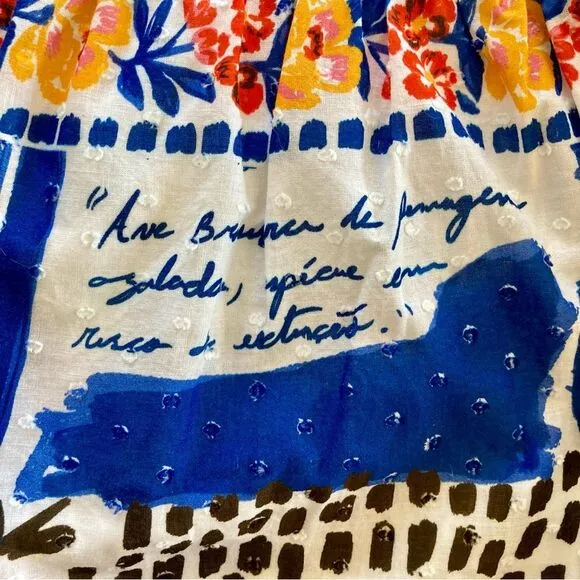 "Ave Branca de plumagem
azulada, espécie em
risco de extinção."